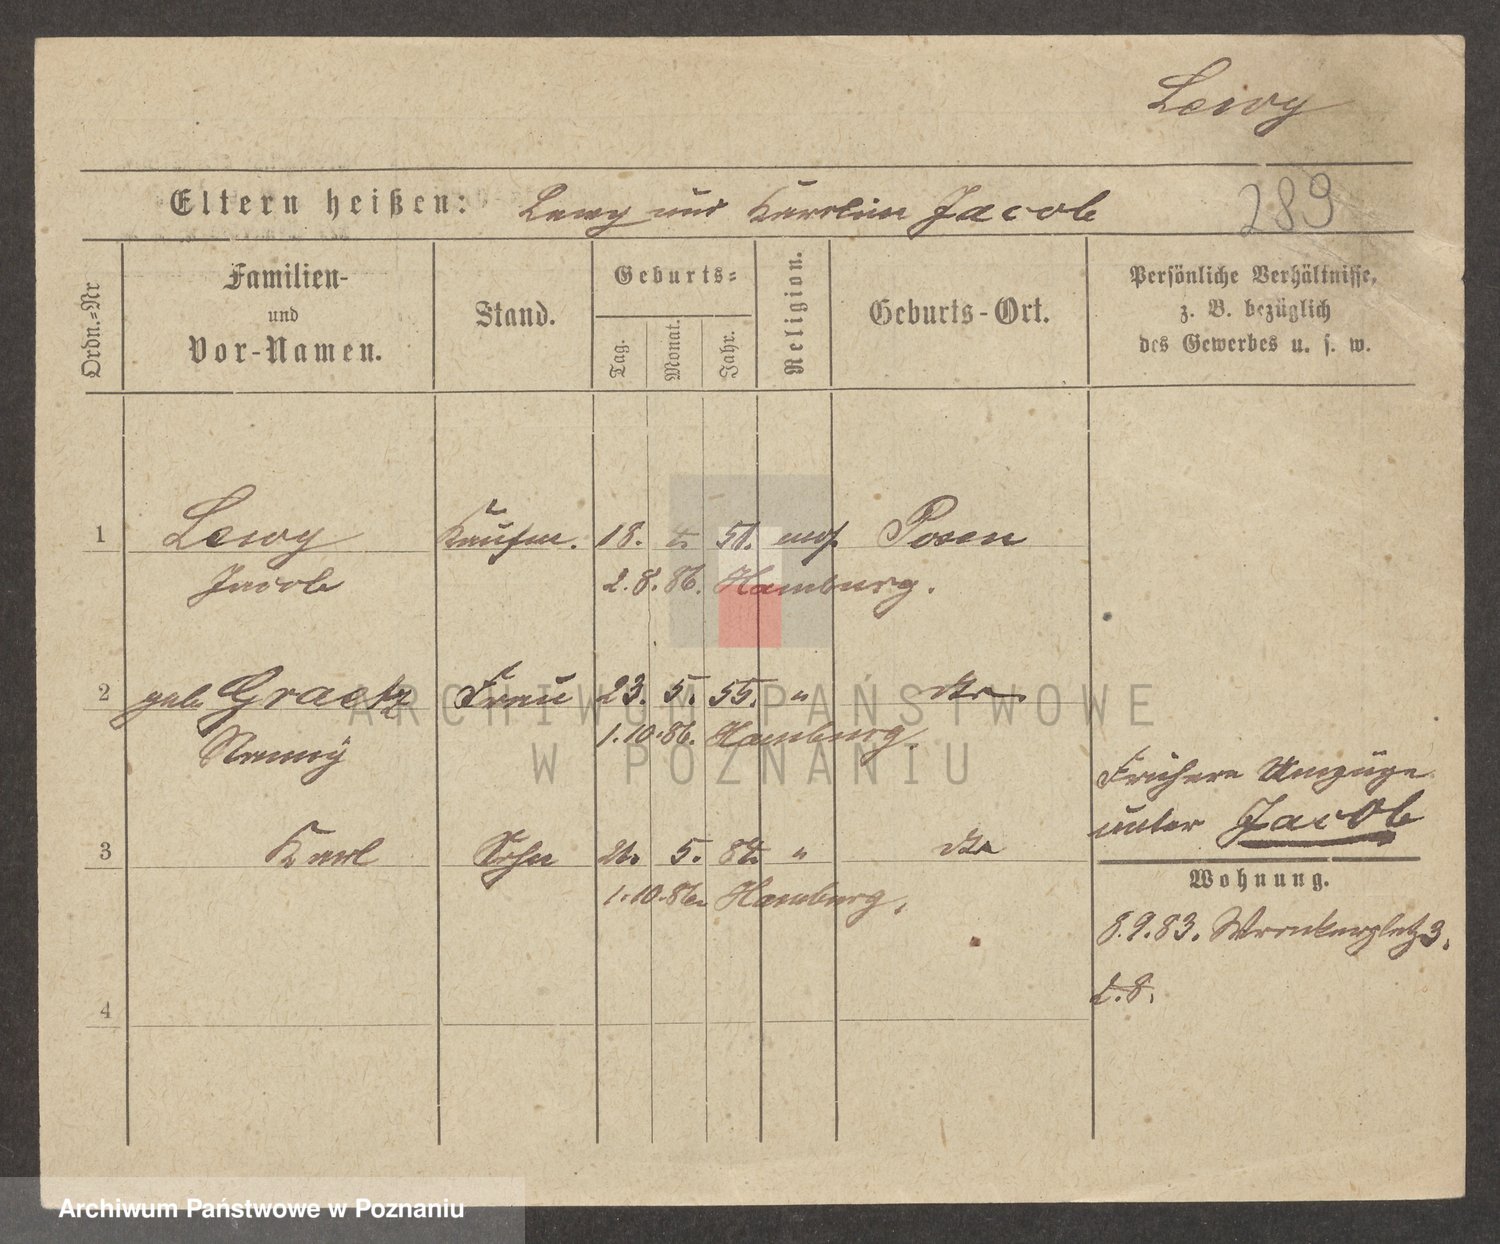 Lewy
289
Eltern heißen: Lewy und Karolin Jacob
Ordn.=Nr
Familien-
und
Vor-Namen.
Stand.
Geburts=
Tag.
Monat.
Jahr.
Religion.
Geburts-Ort.
Persönliche Verhältnisse,
z. B. bezüglich
des Gewerbes u. s. w.
1 Lewy Kaufm. 18. 51. mos. Posen
Jacob 2. 8. 86. Hamburg.
2 geb. Graetz Frau 23. 5. 55. " dto
1. 10. 86. Hamburg.
3 Karl Sohn 5. " dto
1. 10. 86. Hamburg.
4
Frühere Umzüge
unter Jacob
Wohnung.
8. 9. 83. Wronkerplatz 3.
2. 8.
ARCHIWUM PAŃSTWOWE
W POZNANIU
Archiwum Państwowe w Poznaniu